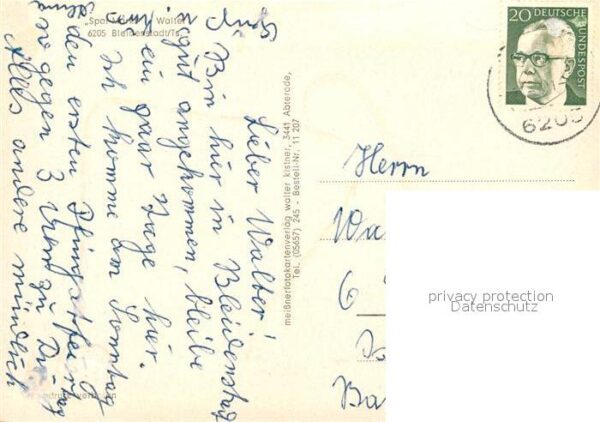 "Spar-Markt" Walter
6205 Bleidenstadt/Ts.
Lieber Walter!
Bin hier in Bleidenstadt
gut angekommen, bleibe
ein paar Tage hier.
Ich komme am Sonntag
den ersten Pfingstfeiertag
so gegen 3 Uhr zu Dir
Alles andere mündlich
Gruß
meißnerfotokartenverlag walter kistner, 3441 Abterode,
Tel. (05657) 245 - Bestell-Nr. 11 207
20 DEUTSCHE
BUNDESPOST
6205
Herrn
6
Ba
privacy protection
Datenschutz